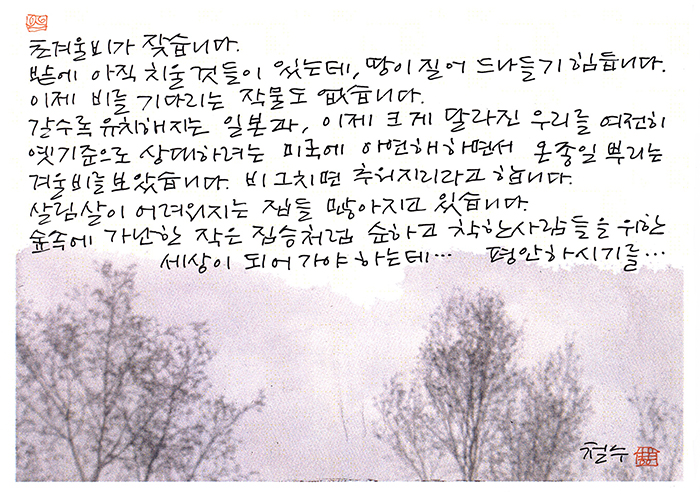 초겨울비가 잦습니다.
밭에 아직 치울 것들이 있는데, 땅이 질어 드나들기 힘듭니다.
이제 비를 기다리는 작물도 없습니다.
갈수록 유치해지는 일본과, 이제 크게 달라진 우리를 여전히
옛기준으로 상대하려는 미국에 아연해하면서 온종일 뿌리는
겨울비를 보았습니다. 비 그치면 추워지리라고 합니다.
살림살이 어려워지는 집들 많아지고 있습니다.
숲속에 가난한 작은 짐승처럼 순하고 착한 사람들을 위한
세상이 되어 가야 하는데… 평안하시기를…
철수